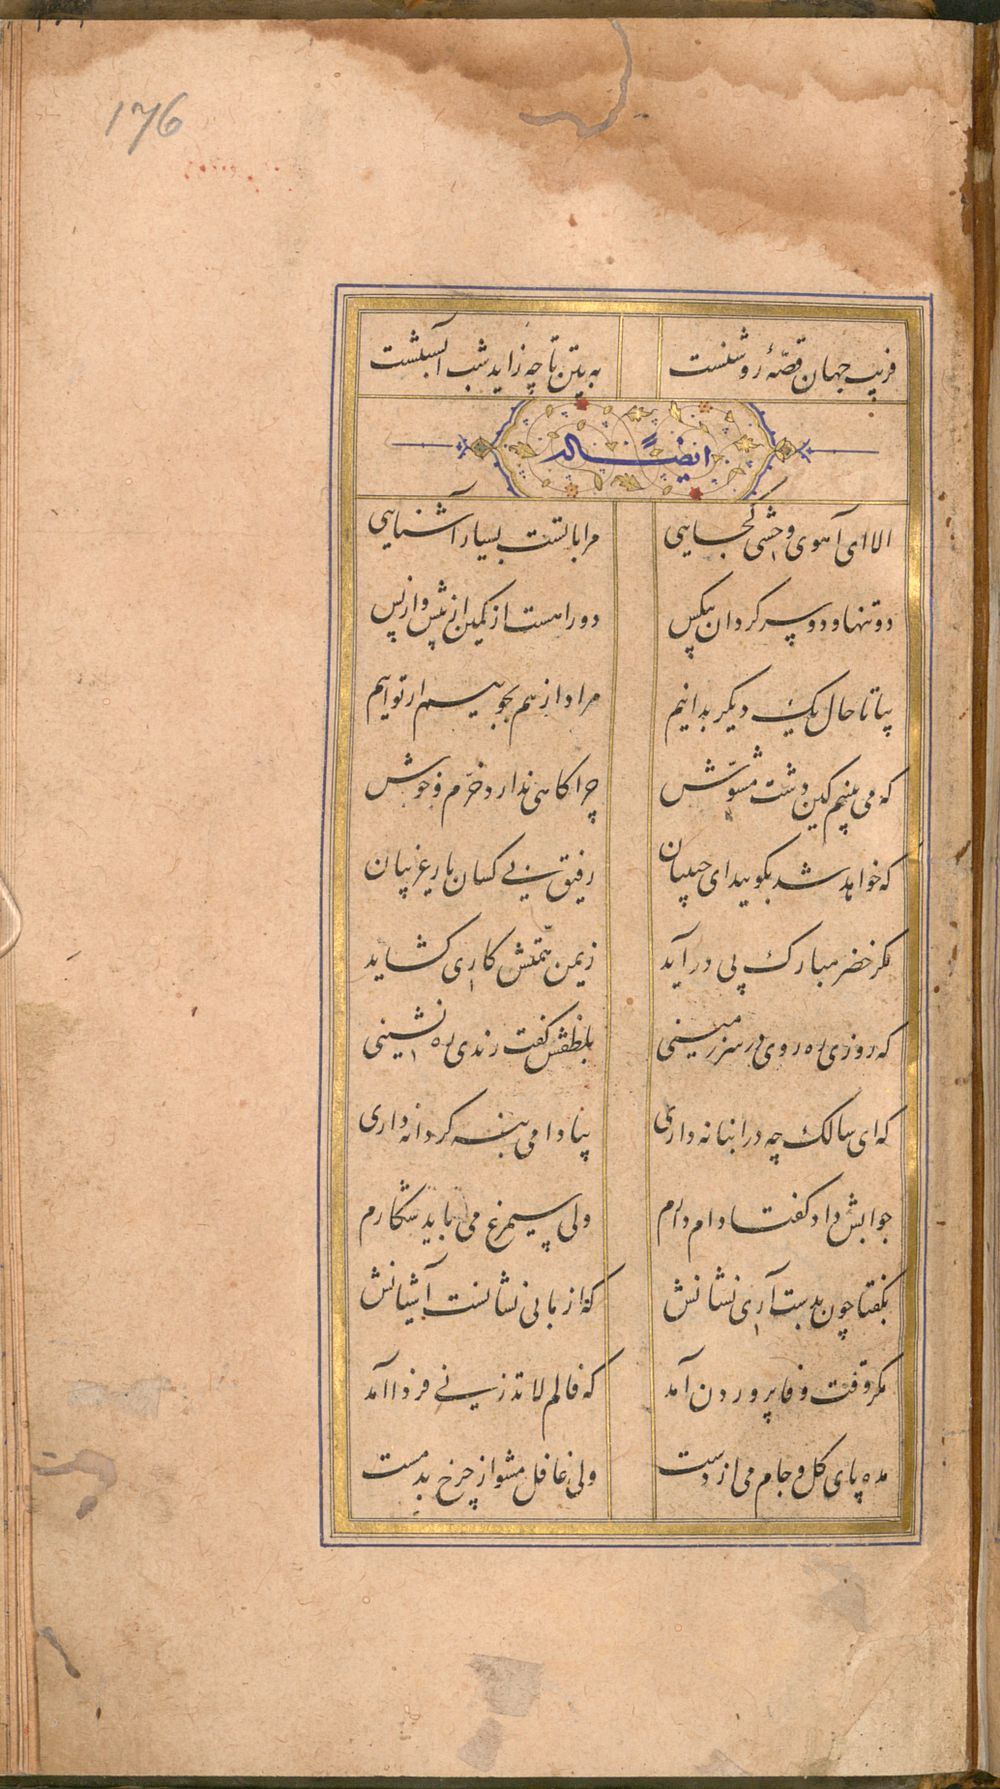 176
فریب جهان قصهٔ روشنست به بین تا چه زاید شب آبستنست
ایضاً له
الا ای آهوی وحشی کجایی مرا با تست بسیار آشنایی
دو تنها و دو سرگردان بیکس دو راهست از کمین از پیش و از پس
بیا تا حال یک دیگر بدانیم مراد از هم بجوییم ار توانیم
که می بینم کین دشت مشوش چراگاهی ندارد خرم و خوش
که خواهد شد بگویید ای حبیبان رفیق بی کسان یار غریبان
مگر خضر مبارک پی در آید ز یمن همتش کاری گشاید
که روزی ره روی در سرزمینی بلطفش گفت رندی ره نشینی
که ای سالک چه در انبانه داری بیا دامی بنه گر دانه داری
جوابش داد گفتا دام دارم ولی سیمرغ می باید شکارم
بگفتا چون بدست آری نشانش که از ما بی نشانست آشیانش
مگر وقت وفا پروردن آمد که فالم لا تذرنی فردا آمد
مده پای گل و جام می از دست ولی غافل مشو از چرخ بدمست